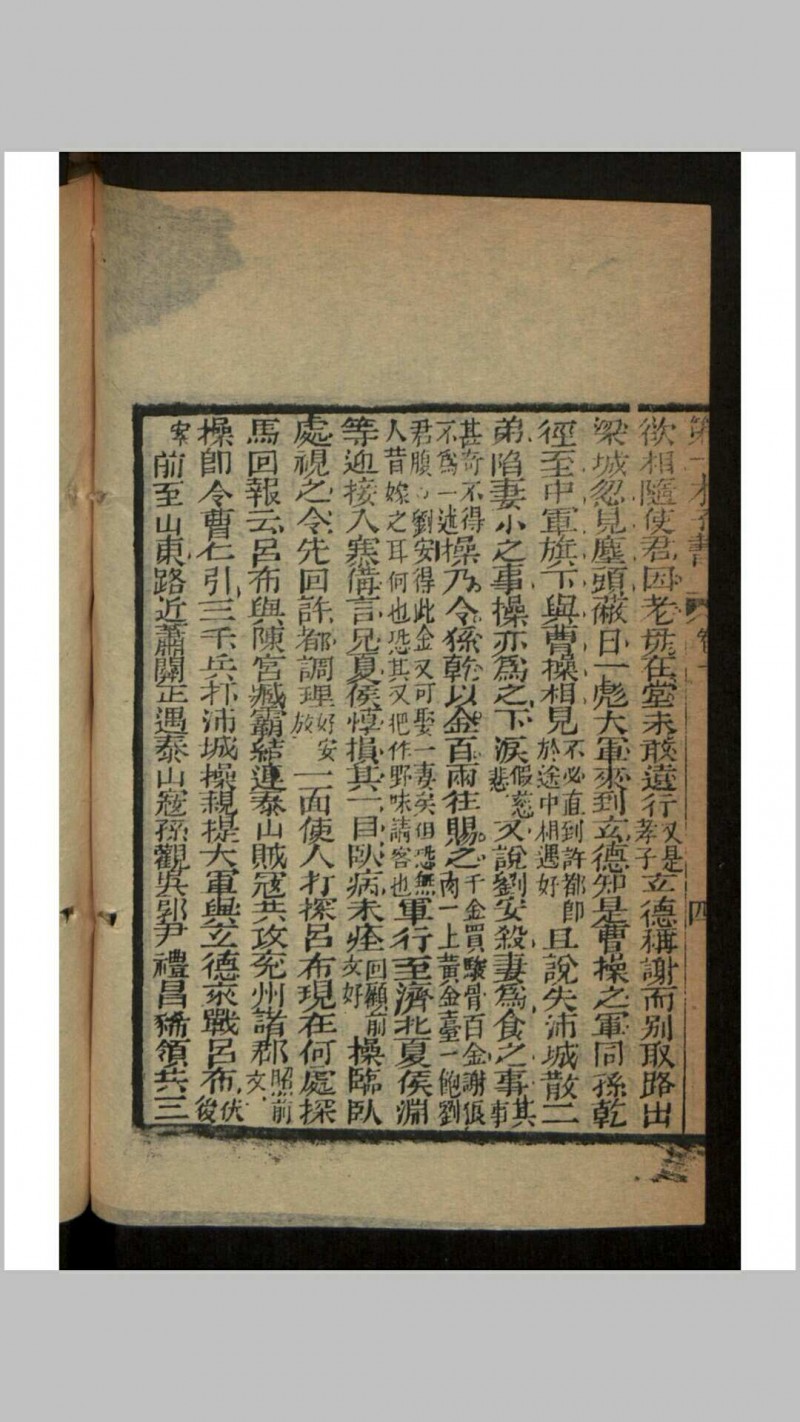 第一才子書 四
欲相隨使君因老母在堂未敢遠行又是孝子玄德稱謝而別取路出
梁城忽見塵頭蔽日一彪大軍來到玄德知是曹操之軍同孫乾
徑至中軍旗下與曹操相見不必直到許都即於途中相遇好且說失沛城散二
弟陷妻小之事操亦爲之下淚假慈悲又說劉安殺妻爲食之事其事
甚奇不得不爲一述操乃令孫乾以金百兩往賜之千金買駿骨百金謝狠肉一上黃金臺一飽劉
君腹劉安得此金又可娶一妻矣但恐無人昔嫁之耳何也恐其又把作野味請客也軍行至濟北夏侯淵
等迎接入寨備言兄夏侯惇損其一目臥病未痊回顧前文好操臨臥
處視之令先回許都調理好安放一面使人打探呂布現在何處探
馬回報云呂布與陳宮臧霸結連泰山賊寇共攻兗州諸郡照前文
操卽令曹仁引三千兵打沛城操親提大軍與玄德來戰呂布伏後
案前至山東路近蕭關正遇泰山寇孫觀吳郭尹禮昌豨領兵三